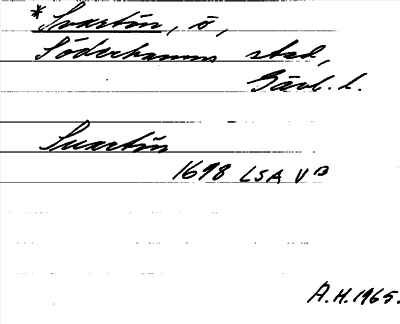 *Svartön, ö,
Söderhamns stad,
Gävl. l.
Svartön
1698 LSA V 13
A.H. 1965.